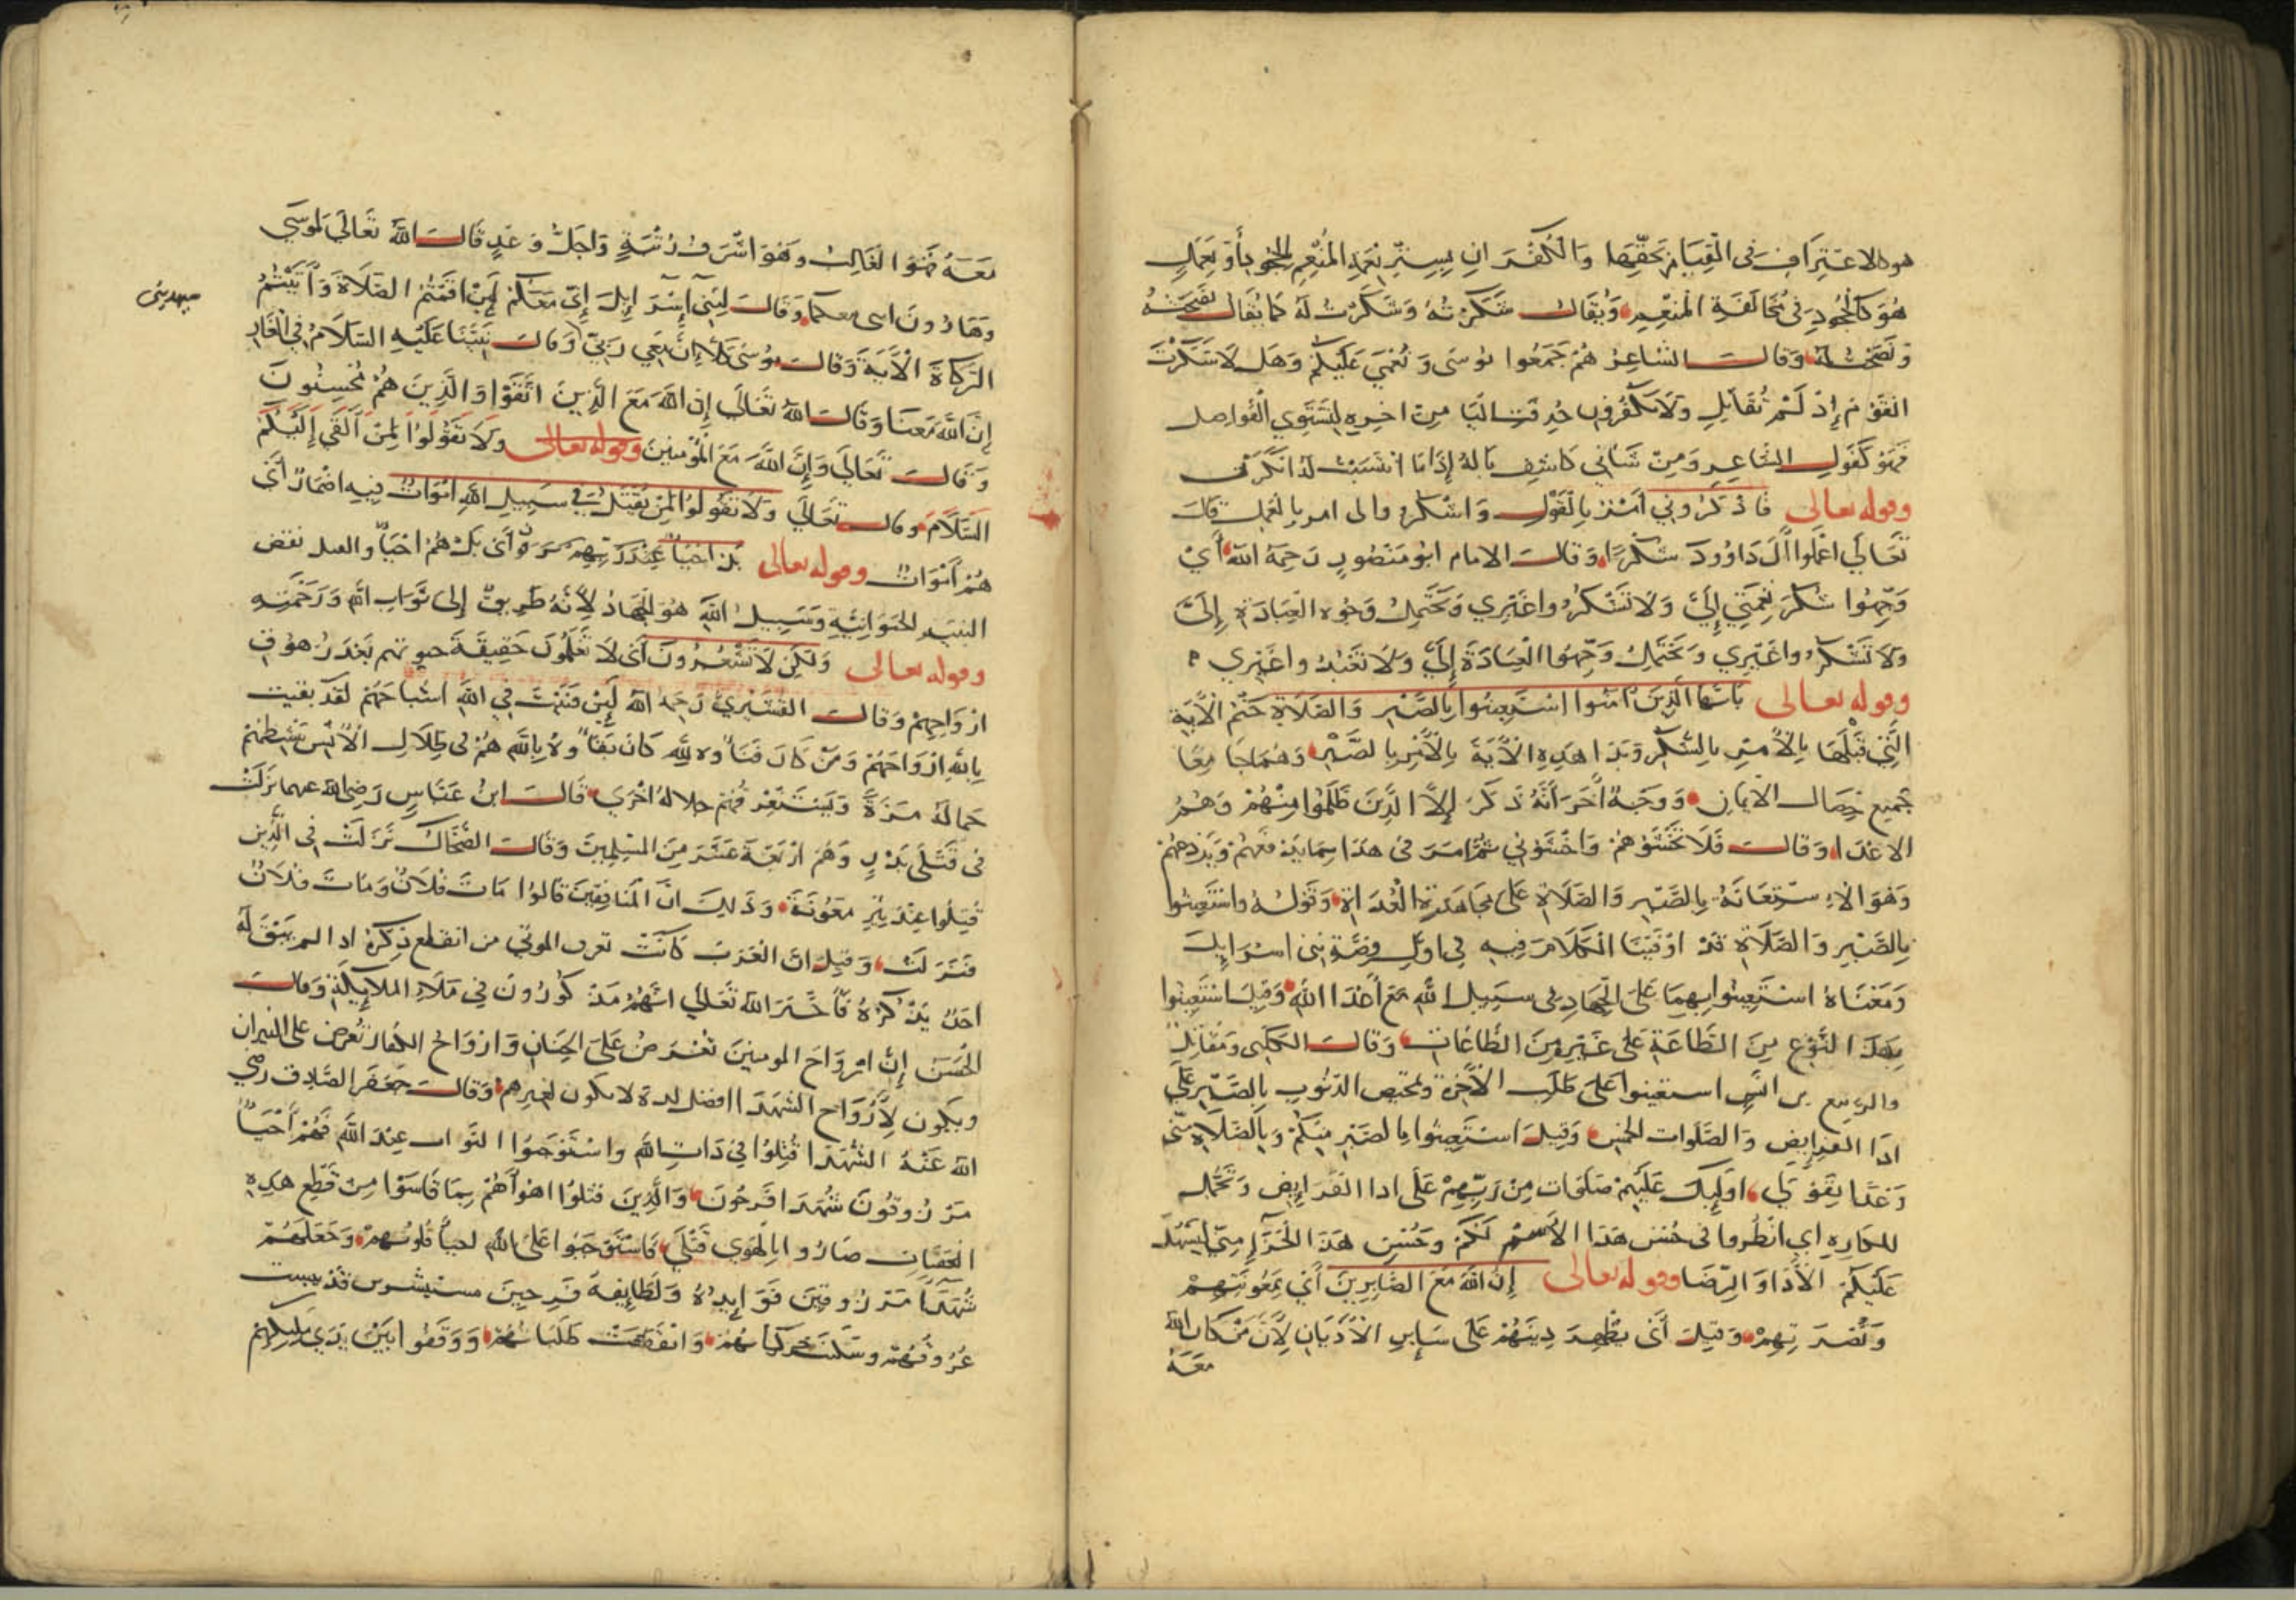 هو الاعتراف في القيام بحقها والكفران بستر نعمه المنعم بالجحود أو بعمل
هو كالجحود في مخالفة المنعم ويقال شكرته وشكرت له كما يقال نصحته
ونصحت له وقال الشاعر هم جمعوا بوسى ونعمى عليكم وهل لا شكرت
القوم إذ لم تقاتل ولا تكفرون حذفت اليا من اخره لتستوي الفواصل
فهو كقول الشاعر ومن شانئ كاشف باله إذا ما انتسبت له انكرن
وقوله تعالى فاذكروني أمر بالقول واشكروا لي امر بالعمل قال
تعالى اعملوا آل داوود شكرا وقال الامام ابو منصور رحمه الله أي
وجهوا شكر نعمتي إلي ولا تشكروا غيري ويحتمل وجوه العبادة إلي
ولا تشكروا غيري ويحتمل وجهوا العبادة إلي ولا تعبدوا غيري
وقوله تعالى ياأيها الذين آمنوا استعينوا بالصبر والصلاة ختم الآية
التي قبلها بالأمر بالشكر وبدا هذه الآية بالأمر بالصبر وهما جامعا
جميع خصال الايمان ووجه آخر أنه ذكر إلا الذين ظلموا منهم وهم
الاعدا وقال فلا تخشوهم واخشوني ثم امر في هذا بما يدفعهم ويردهم
وهو الاستعانة بالصبر والصلاة على مجاهدة العداة وقوله واستعينوا
بالصبر والصلاة قد اوفينا الكلام فيه في اول قصة بني اسرايل
ومعناه استعينوا بهما على الجهاد في سبيل الله مع أعدا الله وقيل استعينوا
بهذا النوع من الطاعة على غيره من الطاعات وقال الكلبي ومقاتل
والربيع بن انس استعينوا على طلب الآخرة وتمحيص الذنوب بالصبر على
ادا الفرايض والصلوات الخمس وقيل استعينوا بالصبر منكم وبالصلاة مني
وعدا بقولي اوليك عليهم صلوات من ربهم على ادا الفرايض وتحمل
المكاره اي انظروا في حسن هذا الاسم لكم وحسن هذا الجزآ مني ليسهل
عليكم الأذا والرضا وقوله تعالى إن الله مع الصابرين أي بمعونتهم
ونصرتهم وقيل أي يظهر دينهم على ساير الأديان لأن من كان الله
معه
معه فهو الغالب وهو اشرف رتبة واجل وعد قال الله تعالى لموسى
وهارون انني معكما وقال لبني آسرايل إني معكم لين اقمتم الصلاة وآتيتم
الزكاة الآية وقال موسى كلا إن معي ربي وقال نبينا عليه السلام في الغار
إن الله معنا وقال الله تعالى إن الله مع الذين اتقوا والذين هم محسنون
وقال تعالى وإن الله مع المؤمنين وقوله تعالى ولا تقولوا لمن ألقى إليكم
السلام وقال تعالى ولا تقولوا لمن يقتل في سبيل الله اموات فيه اضمار أي
هم أموات وقوله تعالى بل احياء عند ربهم يرزقون أي بل هم احياء والقتل نقض
البنية الحيوانية وسبيل الله هو الجهاد لأنه طريق إلى ثواب الله ورحمته
وقوله تعالى ولكن لا تشعرون أي لا تعلمون حقيقة حيوتهم
ازواجهم وقال القشيري رحمه الله لين فنيت في الله اشباحهم لقد بقيت
بالله ارواحهم ومن كان فناوه لله كان بقاوه بالله هم في ظلال الأنس
جماله مرة ويستغرقهم جلاله اخرى قال ابن عباس رضي الله عنهما نزلت
في قتلى بدر وهم اربعة عشر من المسلمين وقال الضحاك نزلت في الذين
قتلوا عند بئر معونة وذلك ان المنافقين قالوا مات فلان ومات فلان
فنزلت وقيل ان العرب كانت تعرف الموتى من انقطع ذكره اذا لم يبق له
احد يذكره فأخبر الله تعالى انهم مذكورون في ملاء الملايكة وقال
الحسن إن ارواح المومنين تعرض على الجنان وارواح الكفار تعرض على النيران
ويكون لأرواح الشهدا افضل لذة لا يكون لغيرهم وقال جعفر الصادق رضي
الله عنه الشهدا قتلوا في ذات الله واستوجبوا الثواب عند الله فهم أحياء
مرزوقون شهدا فرحون والذين قتلوا اهوآهم بما قاسوا من قطع هذه
العصيان صاروا بالهوى قتلى فاستوجبوا على الله احيا قلوبهم وجعلهم
شهدآ مرزوقين فوايده ولطايفه فرحين مستبشرين قد يبست
عروقهم وسكنت حركاتهم وانقطعت طلباتهم ووقفوا بين يدي مليكهم